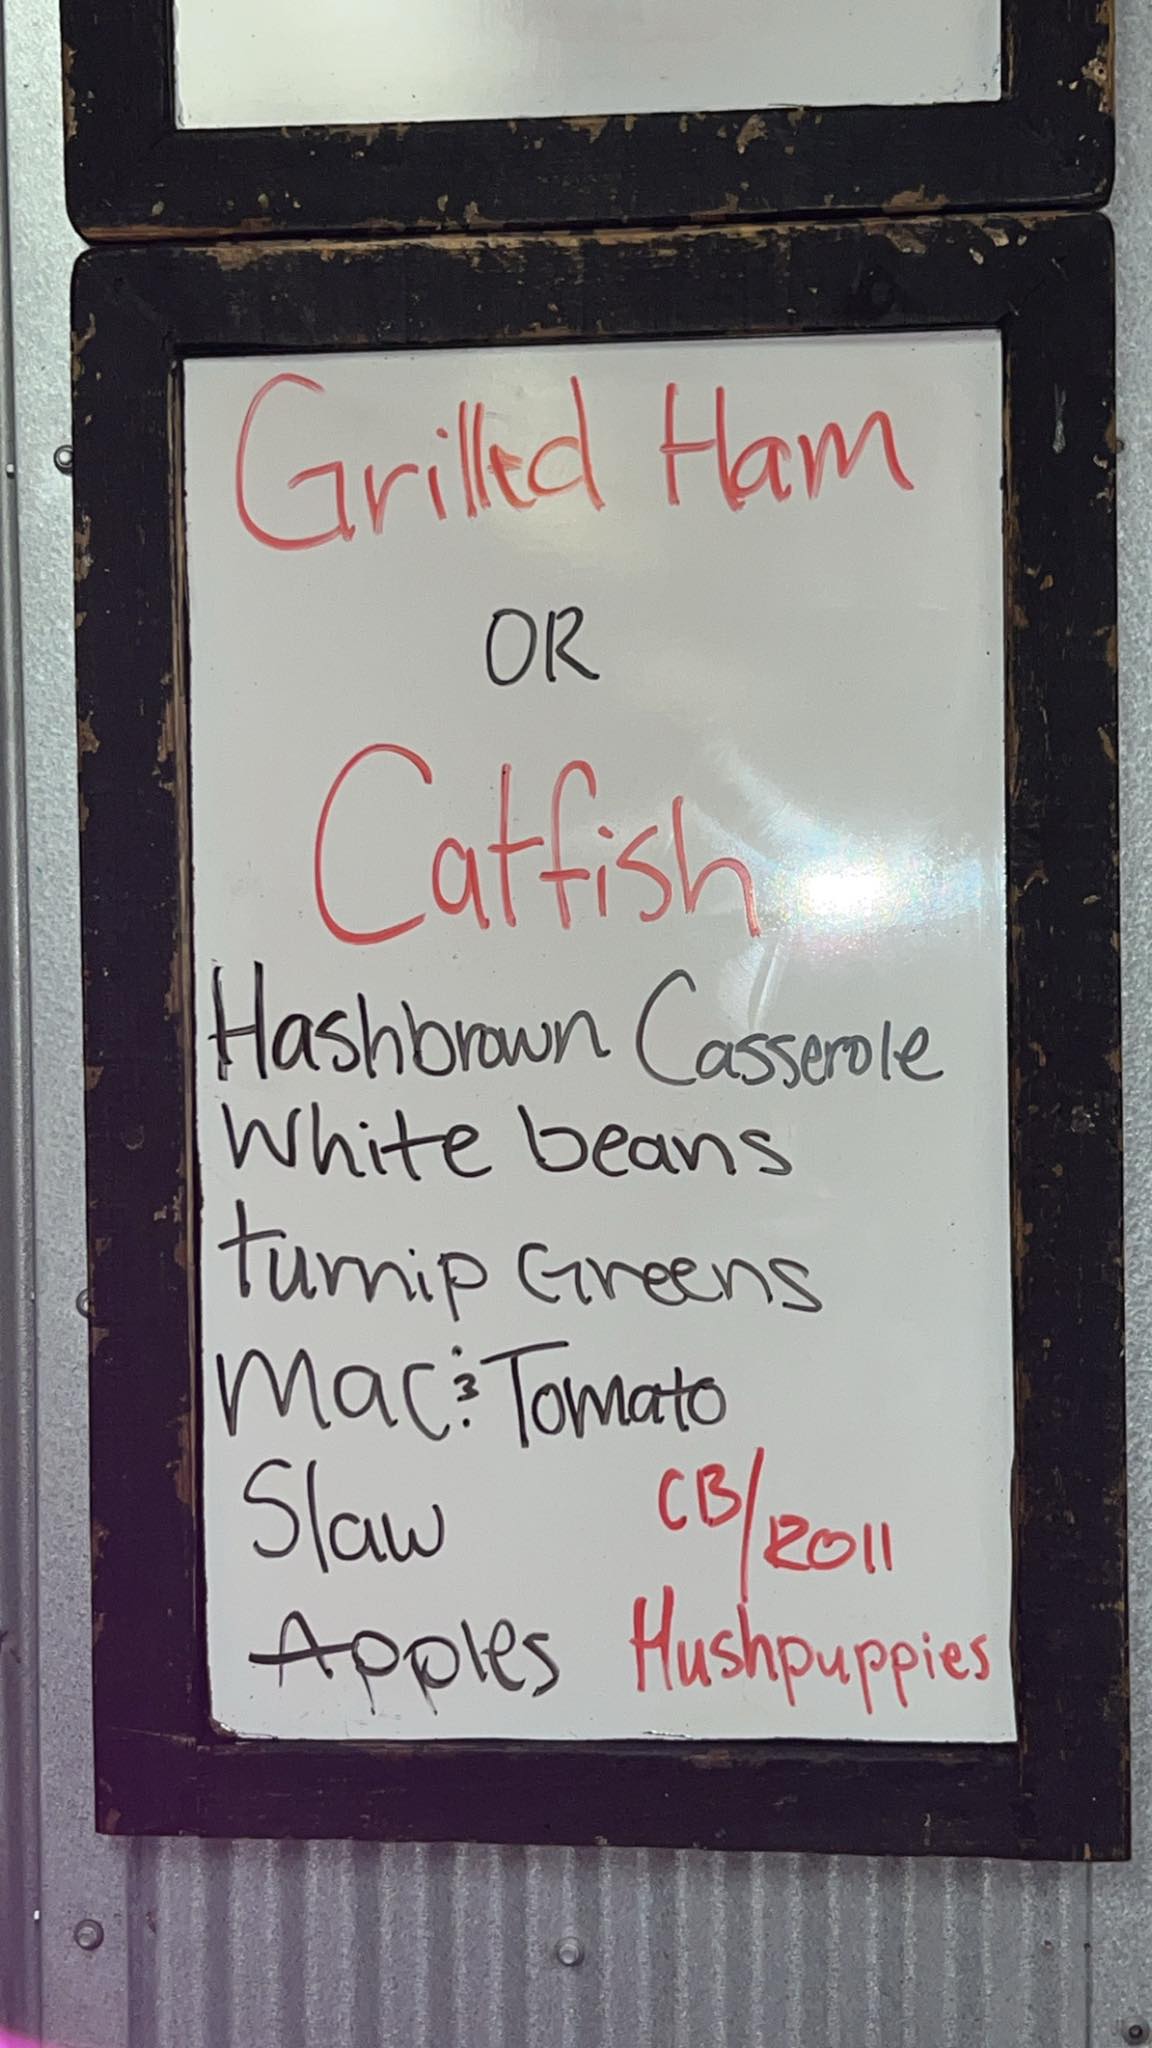 Grilled Ham
OR
Catfish
Hashbrown Casserole
White beans
turnip Greens
Mac & Tomato
Slaw
CB/Roll
Apples
Hushpuppies